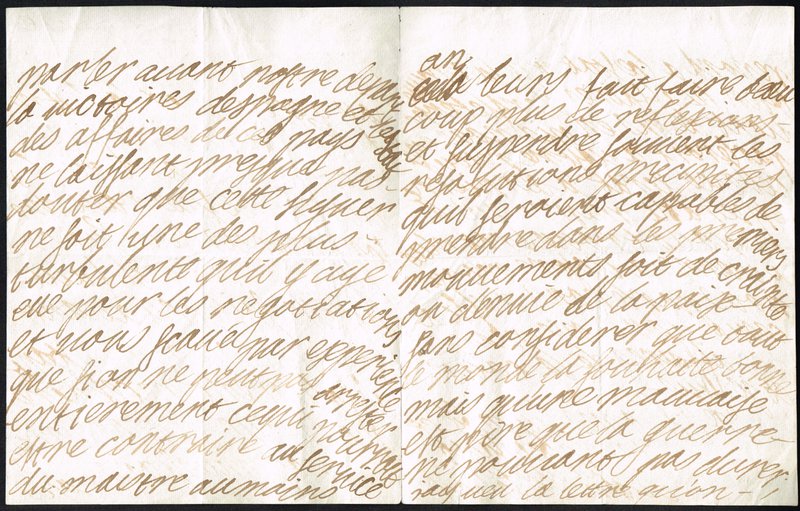 parler avant nostre dernie
la victoires despagne et
des affaires de ces pays
ne laissant presque pas
douter que cette hyver
ne soit lune des plus
turbulents quil y aye
eue pour les negottations
et vous scaves par experience
que si on ne peut pas arrester
entierement cequi pourroit
estre contraire au service
du maistre aumoins
an
cela leurs fait faire beau
coup plus de reflexions
et suspendre souvent les
resolutions
quil seroient capables de
prendre dans les premiers
mouvements soit de crainte
ou denvie de la paix
sans considerer que tout
le monde la souhaitte bonne
mais quune mauvaise
est pire que la guerre
ne pouvant pas durer
jay veu la lettre quon